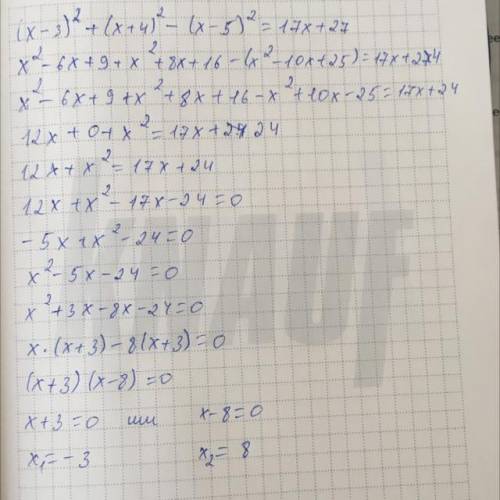 (x-3)² + (x+4)² - (x-5)² = 17x+27
x² - 6x + 9 + x² + 8x + 16 - (x² - 10x + 25) = 17x + 24
x² - 6x + 9 + x² + 8x + 16 - x² + 10x - 25 = 17x + 24
12x + 0 + x² = 17x + 24
12x + x² = 17x + 24
12x + x² - 17x - 24 = 0
- 5x + x² - 24 = 0
x² - 5x - 24 = 0
x² + 3x - 8x - 24 = 0
x · (x+3) - 8(x+3) = 0
(x+3)(x-8) = 0
x+3 = 0 или x-8 = 0
x₁ = -3 x₂ = 8
KNAUF